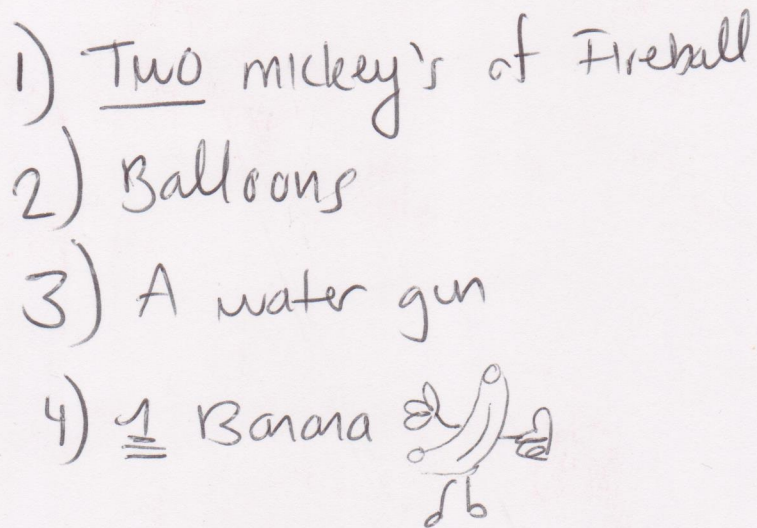 1) Two mickey's of Fireball
2) Balloons
3) A water gun
4) 1 Banana